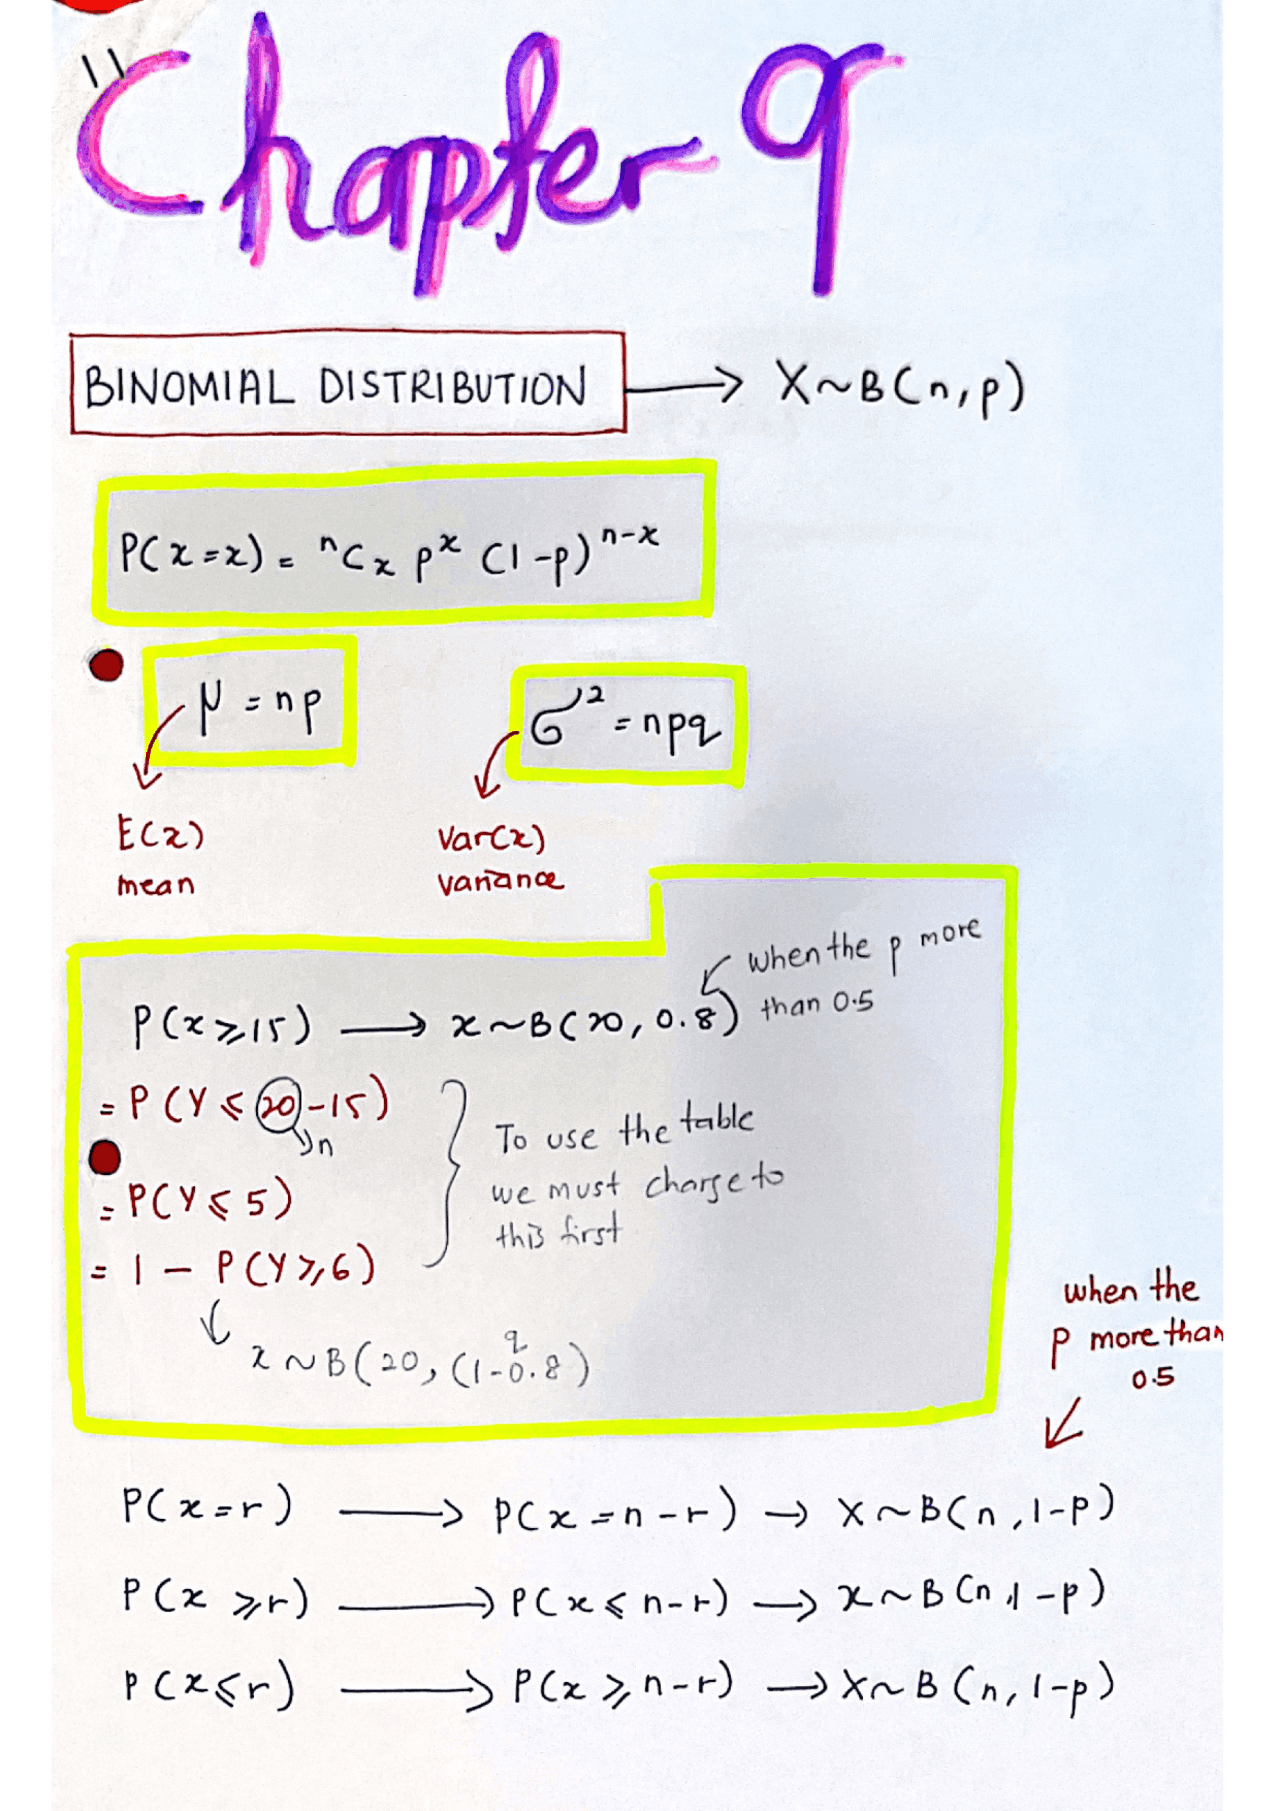 Chapter 9
BINOMIAL DISTRIBUTION → X~B(n,p)
P(x=x) = ⁿCₓ pˣ (1-p)ⁿ⁻ˣ
μ = np
σ² = npq
E(x)
mean
Var(x)
variance
when the p more
than 0.5
P(x≥15) → x~B(20, 0.8)
= P(Y ≤ 20-15)
n
= P(Y≤5)
= 1 - P(Y≥6)
To use the table
we must change to
this first
q
x~B(20, (1-0.8)
when the
p more than
0.5
P(x=r) → P(x=n-r) → X~B(n,1-p)
P(x≥r) → P(x≤n-r) → x~B(n,1-p)
P(x≤r) → P(x≥n-r) → X~B(n,1-p)